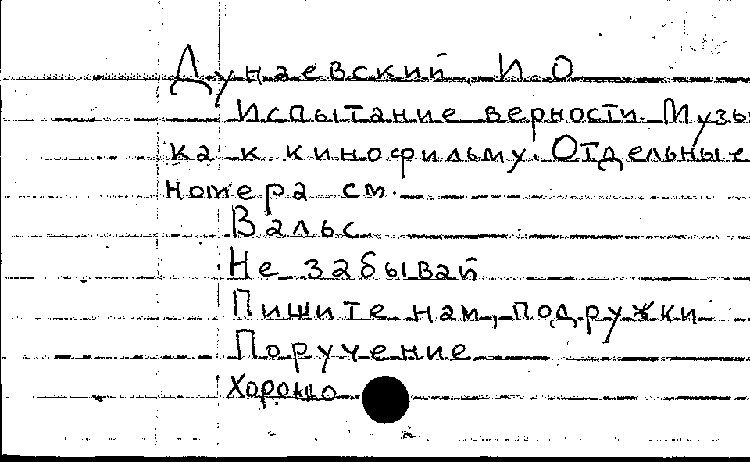 Дунаевский И О
Испытание верности. Музы
ка к кинофильму. Отдельные
номера см.
Вальс
Не забывай
Пишите нам, подружки
Поручение
Хорошо